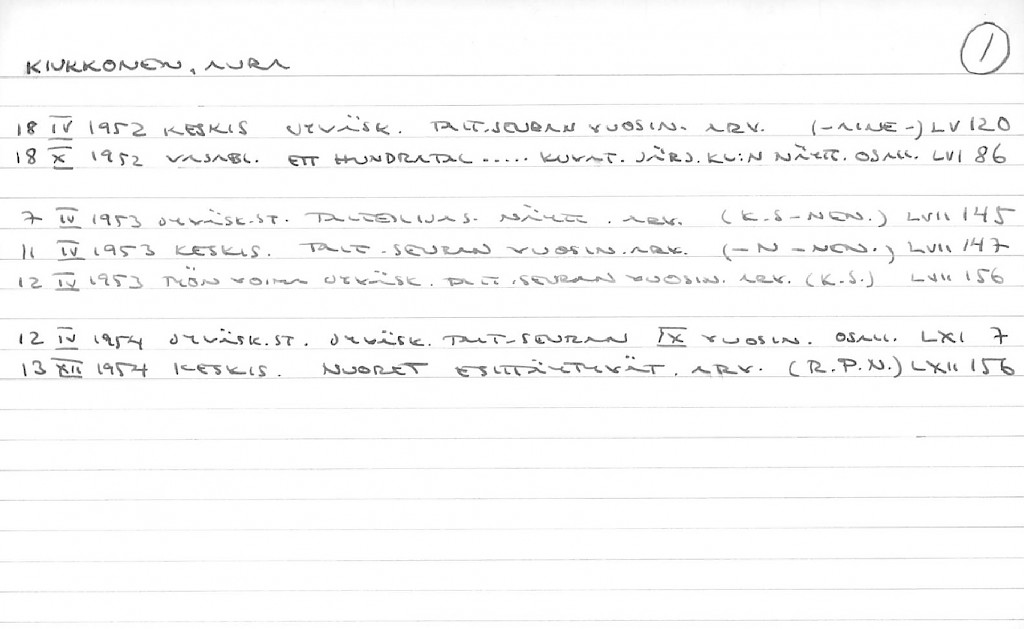 1
KIUKKONEN, AURA
18 IV 1952 KESKIS JYVÄSK. TAIT.SEURAN VUOSIN. ARV. (-AINE-) LV 120
18 X 1952 VASABL. ETT HUNDRATAL ..... KUVAT. JÄRJ. KL:N NÄYTT. OSALL. LVI 86
7 IV 1953 JYVÄSK.ST. TAITEILIJAS. NÄYTT. ARV. (K.S-NEN.) LVII 145
11 IV 1953 KESKIS. TAIT.-SEURAN VUOSIN.ARV. (-N-NEN.) LVII 147
12 IV 1953 TYÖN VOIMA JYVÄSK. TAIT.-SEURAN VUOSIN. ARV. (K.S.) LVII 156
12 IV 1954 JYVÄSK.ST. JYVÄSK. TAIT-SEURAN IX VUOSIN. OSALL. LXI 7
13 XII 1954 KESKIS. NUORET ESITTÄYTYVÄT. ARV. (R.P.N.) LXII 156